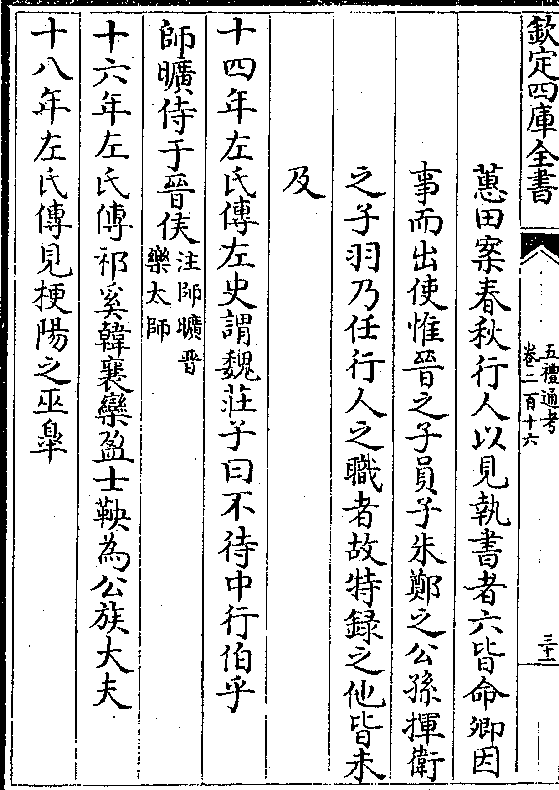 欽定四庫全書
五禮通考
卷二百十六
三十一
蕙田案春秋行人以見執書者六皆命卿因
事而出使惟晉之子員子朱鄭之公孫揮衛
之子羽乃任行人之職者故特録之他皆未
及
十四年左氏傳左史謂魏莊子曰不待中行伯乎
師曠侍于晉侯注師曠晋
樂太師
十六年左氏傳祁奚韓襄欒盈士鞅為公族大夫
十八年左氏傳見梗陽之巫臯